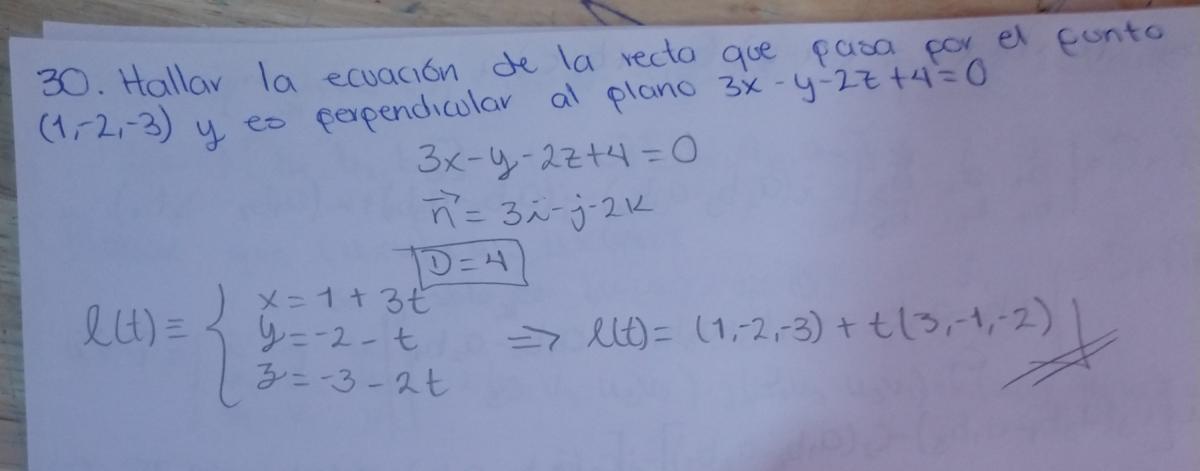 30. Hallar la ecuación de la recta que pasa por el punto
(1,-2,-3) y es perpendicular al plano 3x-y-2z+4=0
3x-y-2z+4=0
n⃗ = 3i-j-2k
D=4
l(t)= { x=1+3t
y=-2-t ⇒ l(t)= (1,-2,-3)+t(3,-1,-2)
z=-3-2t